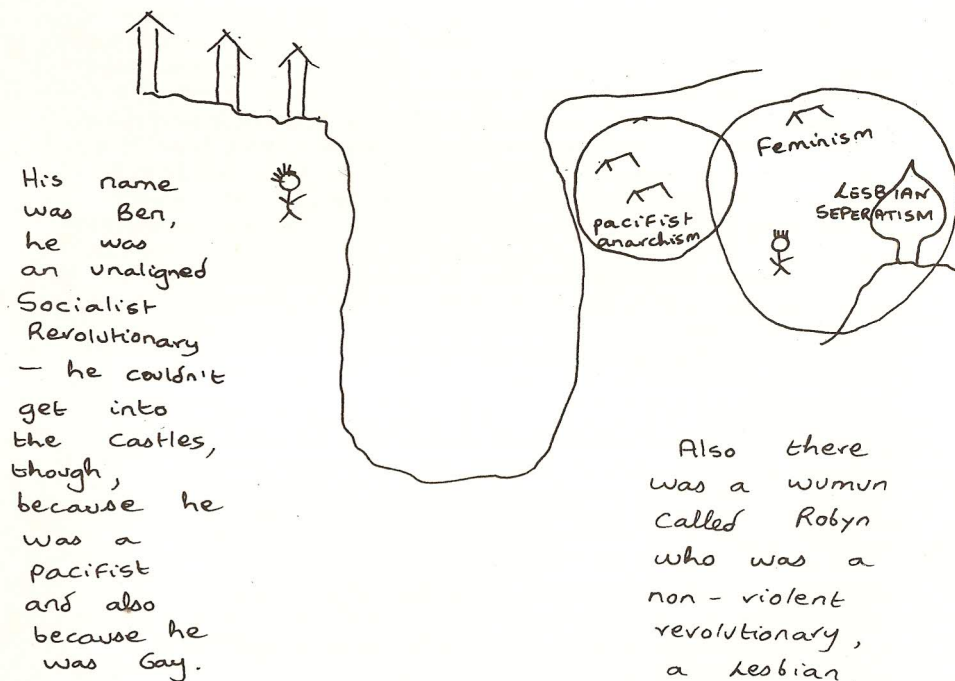 His name
was Ben,
he was
an unaligned
Socialist
Revolutionary
— he couldn't
get into
the Castles,
though,
because he
was a
pacifist
and also
because he
was Gay.
pacifist
anarchism
Feminism
LESBIAN
SEPERATISM
Also there
was a wumun
called Robyn
who was a
non-violent
revolutionary,
a Lesbian